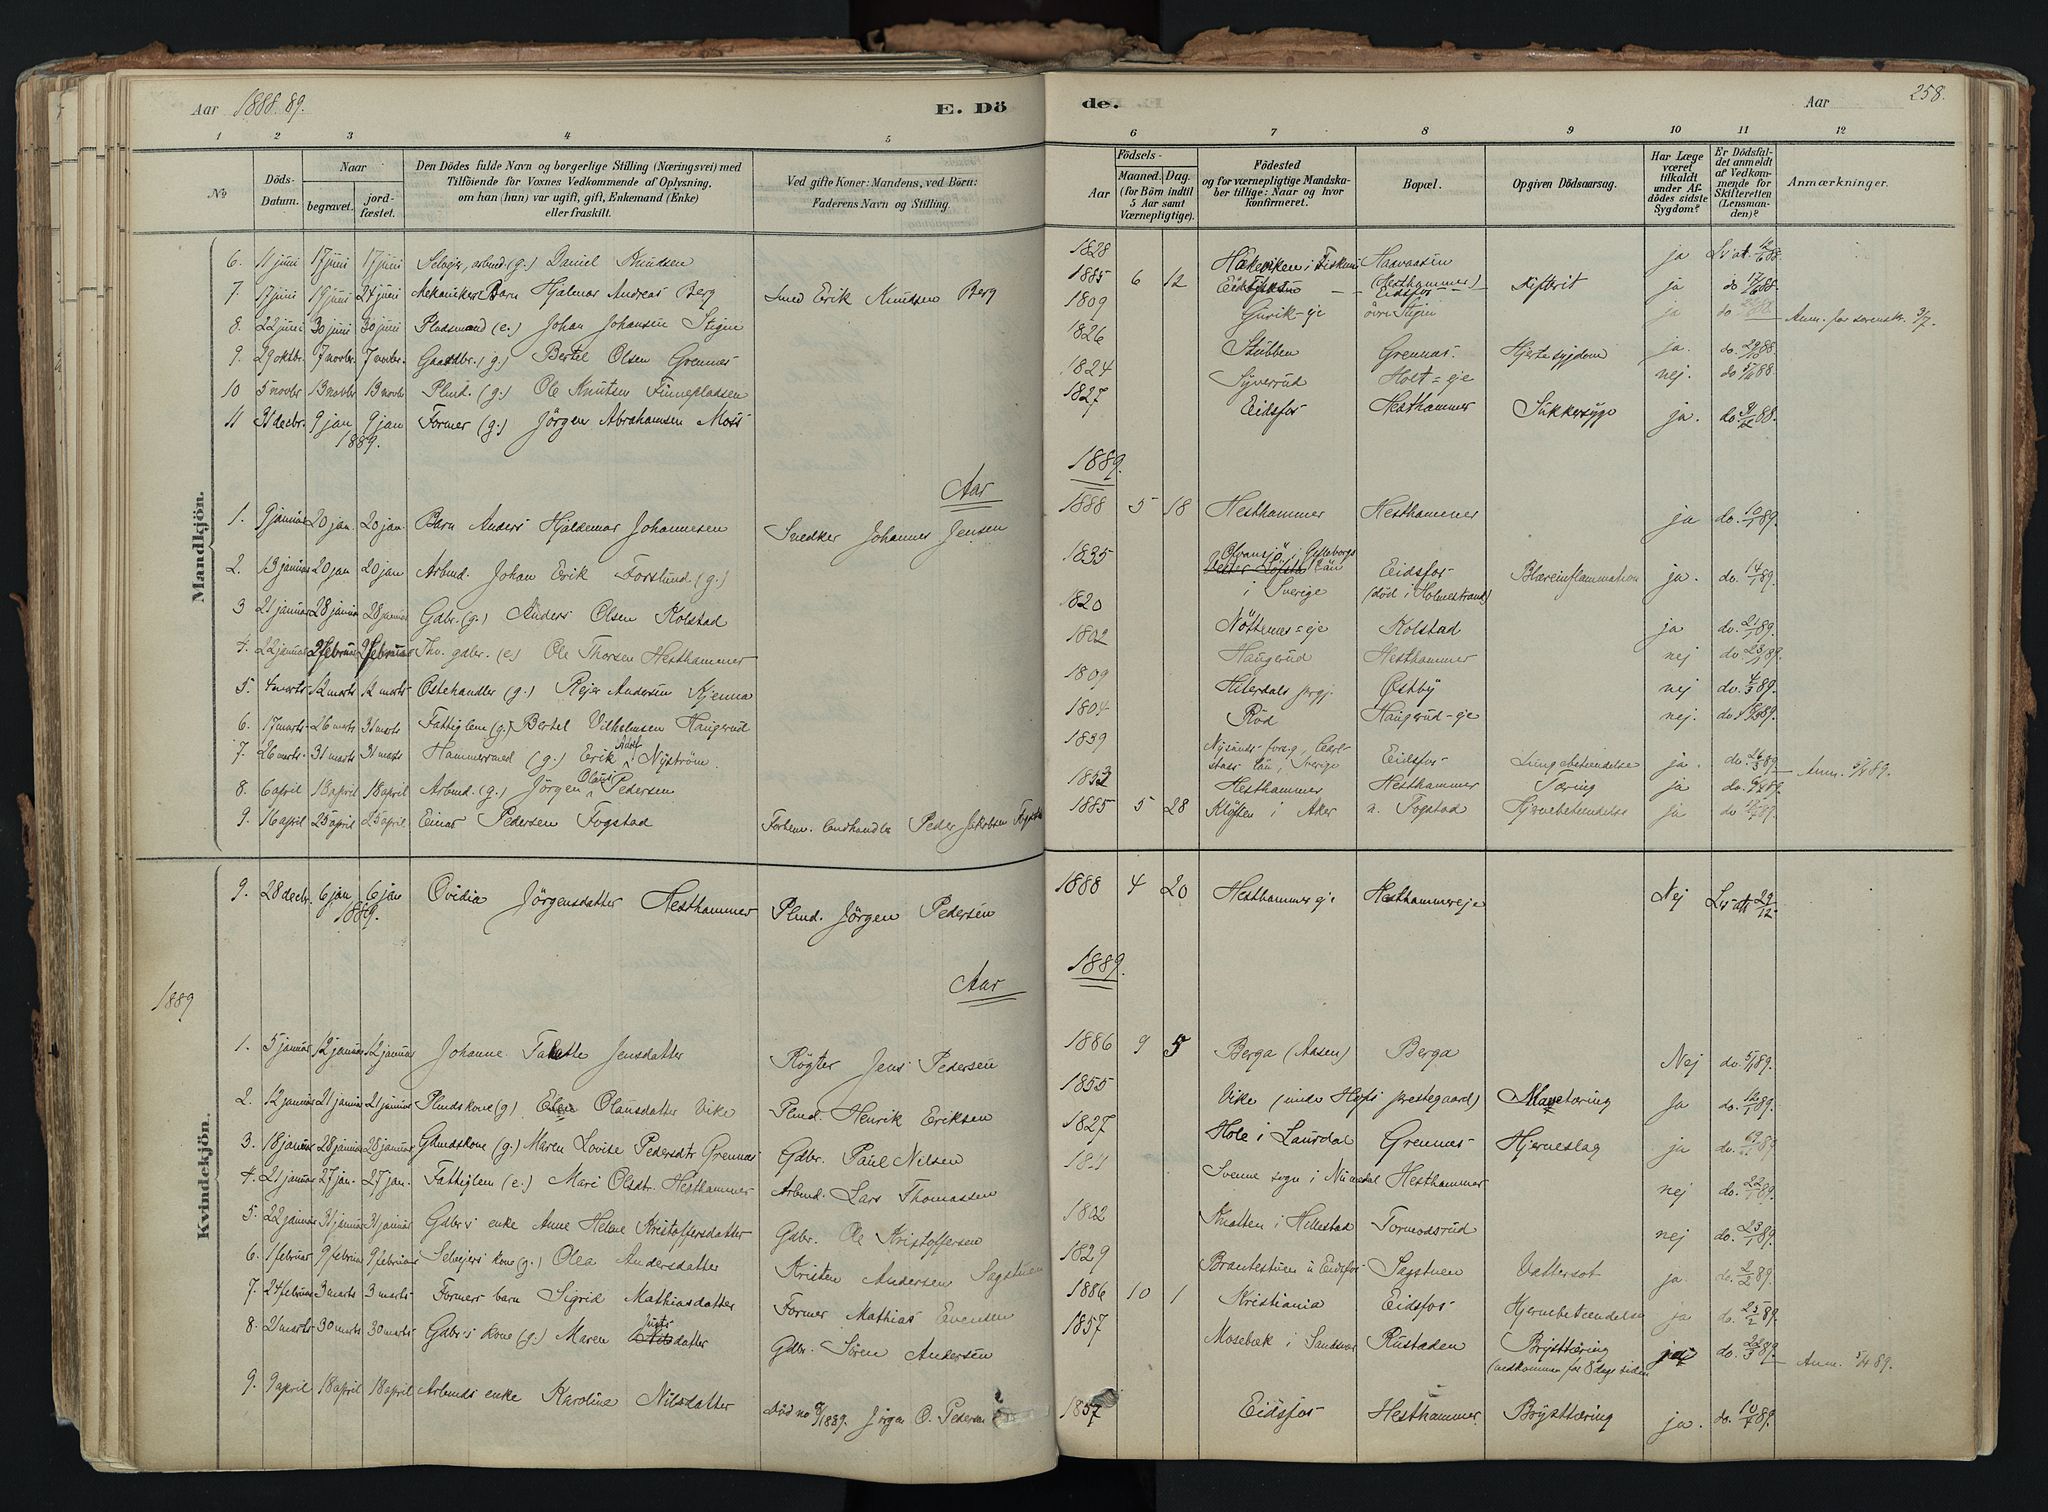 Aar 1888. 89. E. Dö
de. Aar 258.
1 2 3 4 5
6 7 8 9 10 11 12
No Döds-Datum. Naar begravet. jordfæstet. Den Dödes fulde Navn og borgerlige Stilling (Næringsvei) med Tilföiende for Voxnes Vedkommende af Oplysning, om han (hun) var ugift, gift, Enkemand (Enke) eller fraskilt. Ved gifte Koner: Mandens, ved Börn: Faderens Navn og Stilling.
Födsels- Aar Maaned. Dag. (for Börn indtil 5 Aar samt Værnepligtige). Födested og for værnepligtige Mandskaber tillige: Naar og hvor konfirmeret. Bopæl. Opgiven Dödsaarsag. Har Læge været tilkaldt under Afdödes sidste Sygdom? Er Dödsfaldet anmeldt af Vedkommende for Skifteretten (Lensmanden)? Anmærkninger.
Mandkjön.
6. 11 juni 17 juni 17 juni Selveier, arbmd (g.) Daniel Knudsen 1828 Haavaasen ja
7. 17 juni 19 juni 24 juni Mekanikers Barn Hjalmar Andreas Berg Smed Erik Knutsen Berg 1885 6 12 (Hesthammer) Eidsfos Difterit ja do 17/6 88
8. 22 juni 30 juni 30 juni Pladsmand (e.) Johan Johansen Stigen 1809 Gurik-eje övre Stigen ja do Anm. for sorenskr. 3/7.
9. 29 oktbr. 7 novbr. 7 novbr. Gaardbr. (g.) Bertel Olsen Grennes 1826 Stubben Grennes. Hjertesygdom ja. do. 29/10 88.
10 5 novbr 13 novbr 13 novbr Plmd. (g.) Ole Knutsen Finnepladsen 1824 Syverud Holt-eje nej. do 88.
11 31 decbr. 9 jan 1889. 9 jan Former (g.) Jörgen Abrahamsen Moss 1827 Eidsfos Hesthammer Sukkersyge ja. do. 88.
Aar 1889.
1. 9 januar 20 jan. 20 jan. Barn Anders Hjaldemar Johannesen Snedker Johannes Jensen 1888 5 18 Hesthammer Hesthammer ja do. 10/1 89.
2. 13 januar 20 jan 20 jan. Arbmd. Johan Erik Forslund (g.) 1835 i Sverige Eidsfos (död i Holmestrand) Blæreinflammation ja. do. 14/1 89.
3 21 januar 28 januar 28 januar Gdbr. (g.) Anders Olsen Kolstad 1820 Nöttenes-eje Kolstad ja do. 21/1 89.
4. 22 januar 2 februar 2 februar Fhv. gdbr. (e) Ole Thorsen Hesthammer 1802 Haugerud Hesthammer nej do. 23/1 89.
5. 4 marts 12 marts 12 marts Ostehandler (g.) Rejer Andersen Kjenna 1809 Hiterdals prgj. Østby nej do. 4/3 89.
6. 17 marts 26 marts 31 marts Fattiglem (g.) Bertel Vilhelmsen Haugerud 1804 Röd Haugerud-eje nej. do 18/3 89.
7. 26 marts. 31 marts 31 marts Hammersmed (g.) Erik Adolf Nyström. 1839 Sverige Eidsfos Lungebetændelse ja. do. 26/3 89. Anm. 5/4 89.
8. 6 april 18 april 18 april Arbmd. (g.) Jörgen Olaus Pedersen 1853 Hesthammer Hesthammer Tæring ja do. 6/4 89.
9. 16 april 25 april 25 april Einar Pedersen Fogstad Forhen. landhandler Peder Jakobsen Fogstad 1885 5 28 Klöften i Aker n. Fogstad Hjernebetændelse ja do 89.
Kvindekjön.
9. 28 decbr. 6 jan 1889. 6 jan Ovidia Jörgensdatter Hesthammer Plmd. Jörgen Pedersen 1888 4 20 Hesthammereje Hesthammereje Nej 29/12
1889 Aar 1889.
1. 5 januar 12 januar 12 januar Johanne Jensdatter Røgter Jens Pedersen 1886 9 5 Berga (Aasen) Berga Nej do. 5/1 89.
2. 12 januar 21 januar 21 januar Plmdskone (g) Elen Olausdatter Vike Plmd. Henrik Eriksen 1855 Vike (under Hofs prestegaard) Mavetæring Ja do. 89.
3. 18 januar 28 januar 28 januar Gdmdskone (g.) Maren Lovise Pedersdtr Grennes Gdbr. Paul Nilsen 1827 Hole i Laurdal Grennes Hjerneslag ja do. 89.
4. 21 januar 27 jan. 27 jan. Fattiglem (e.) Mari Olsdtr. Hesthammer Arbmd. Lars Thomassen 1811 Svenne sogn i Numedal Hesthammer nej do. 22/1 89.
5. 22 januar 31 januar 31 januar Gdbr's enke Anne Helene Kristoffersdatter Gdbr. Ole Kristoffersen 1802 Knatten i Hillestad Tormodsrud nej do. 23/1 89.
6. 1 februar 9 februar 9 februar Selvejers kone (g.) Olea Andersdatter Kristen Andersen Sagstuen 1829 Brantestuen v Eidsfos Sagstuen Vattersot ja do. 2/2 89.
7. 24 februar 3 marts 3 marts Formers barn Sigrid Mathiasdatter Former Mathias Evensen 1886 10 1 Kristiania Eidsfos Hjernebetændelse ja do. 25/2 89.
8. 21 marts 30 marts 30 marts Gdbr's kone (g.) Maren datter Gdbr. Sören Andersen 1857 Mosebæk i Sandsvær Rustaden Brysttæring (nedkommen for 8 dage siden do. 89. Anm. 5/4 89.
9. 9 april 18 april 18 april Arbmds enke Karoline Nilsdatter Död no 8/1889. Jörgen O. Pedersen 1857 Eidsfos Hesthammer. Brysttæring ja. do. 89.